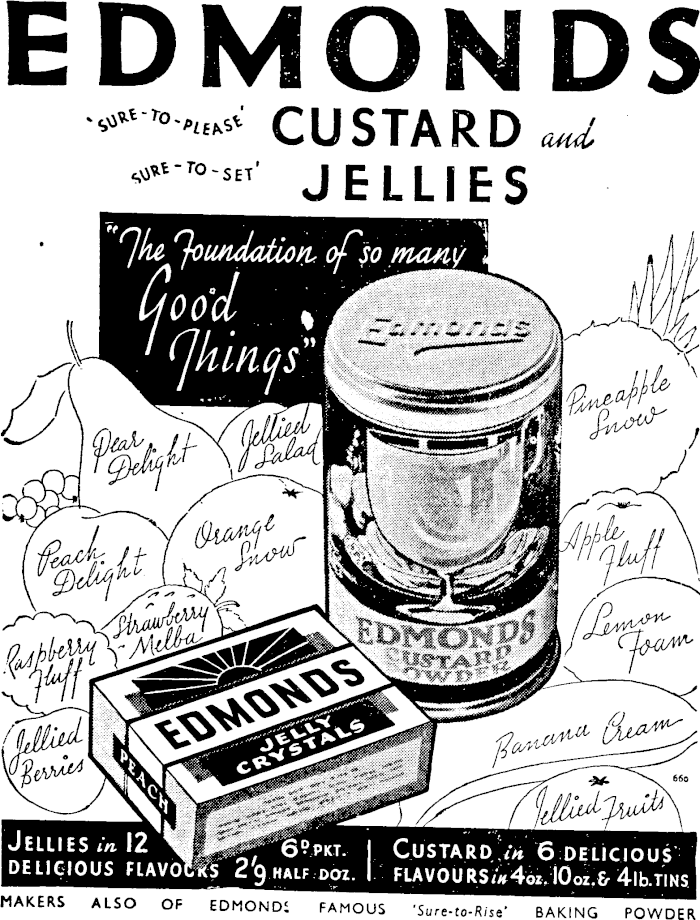 EDMONDS
'SURE-TO-PLEASE' CUSTARD and
SURE-TO-SET' JELLIES
"The Foundation of so many
Good
Things"
Edmonds
Pineapple
Snow
Pear
Delight
Jellied
Salad
Orange
Snow
Apple
Fluff
Peach
Delight
Strawberry
Melba
Lemon
Foam
Raspberry
Fluff
EDMONDS
CUSTARD
POWDER
EDMONDS
JELLY
CRYSTALS
PEACH
Jellied
Berries
Banana Cream
Jellied Fruits
66a
JELLIES in 12 6D. PKT.
DELICIOUS FLAVOURS 2'9 HALF DOZ.
CUSTARD in 6 DELICIOUS
FLAVOURS in 4oz, 10oz, & 4lb. TINS
MAKERS ALSO OF EDMONDS FAMOUS 'Sure-to-Rise' BAKING POWDER